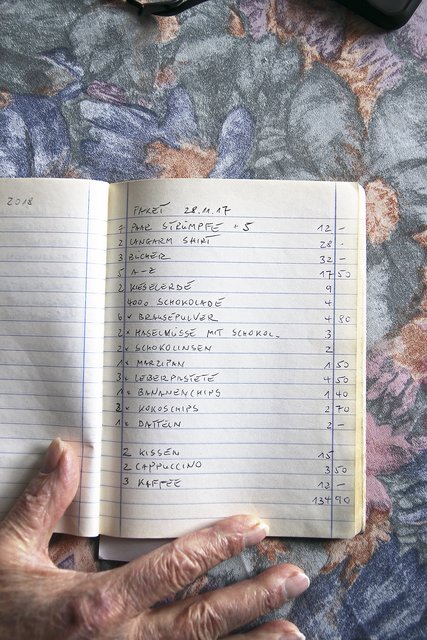 2018
PAKET 28.11.17
7 PAAR STRÜMPFE + 5 12 -
2 LANGARM SHIRT 28 -
3 BÜCHER 32 -
5 A-Z 17 50
2 KIESELERDE 9
400g SCHOKOLADE 4
6 x BRAUSEPULVER 4 80
2 x HASELNÜSSE MIT SCHOKOL. 3
2 x SCHOKOLINSEN 2
1 x MARZIPAN 1 50
3 x LEBERPASTETE 4 50
1 x BANANENCHIPS 1 40
2 x KOKOSCHIPS 2 70
1 x DATTELN 2 -
2 KISSEN 15
2 CAPPUCCINO 3 50
3 KAFFEE 12 -
134 90